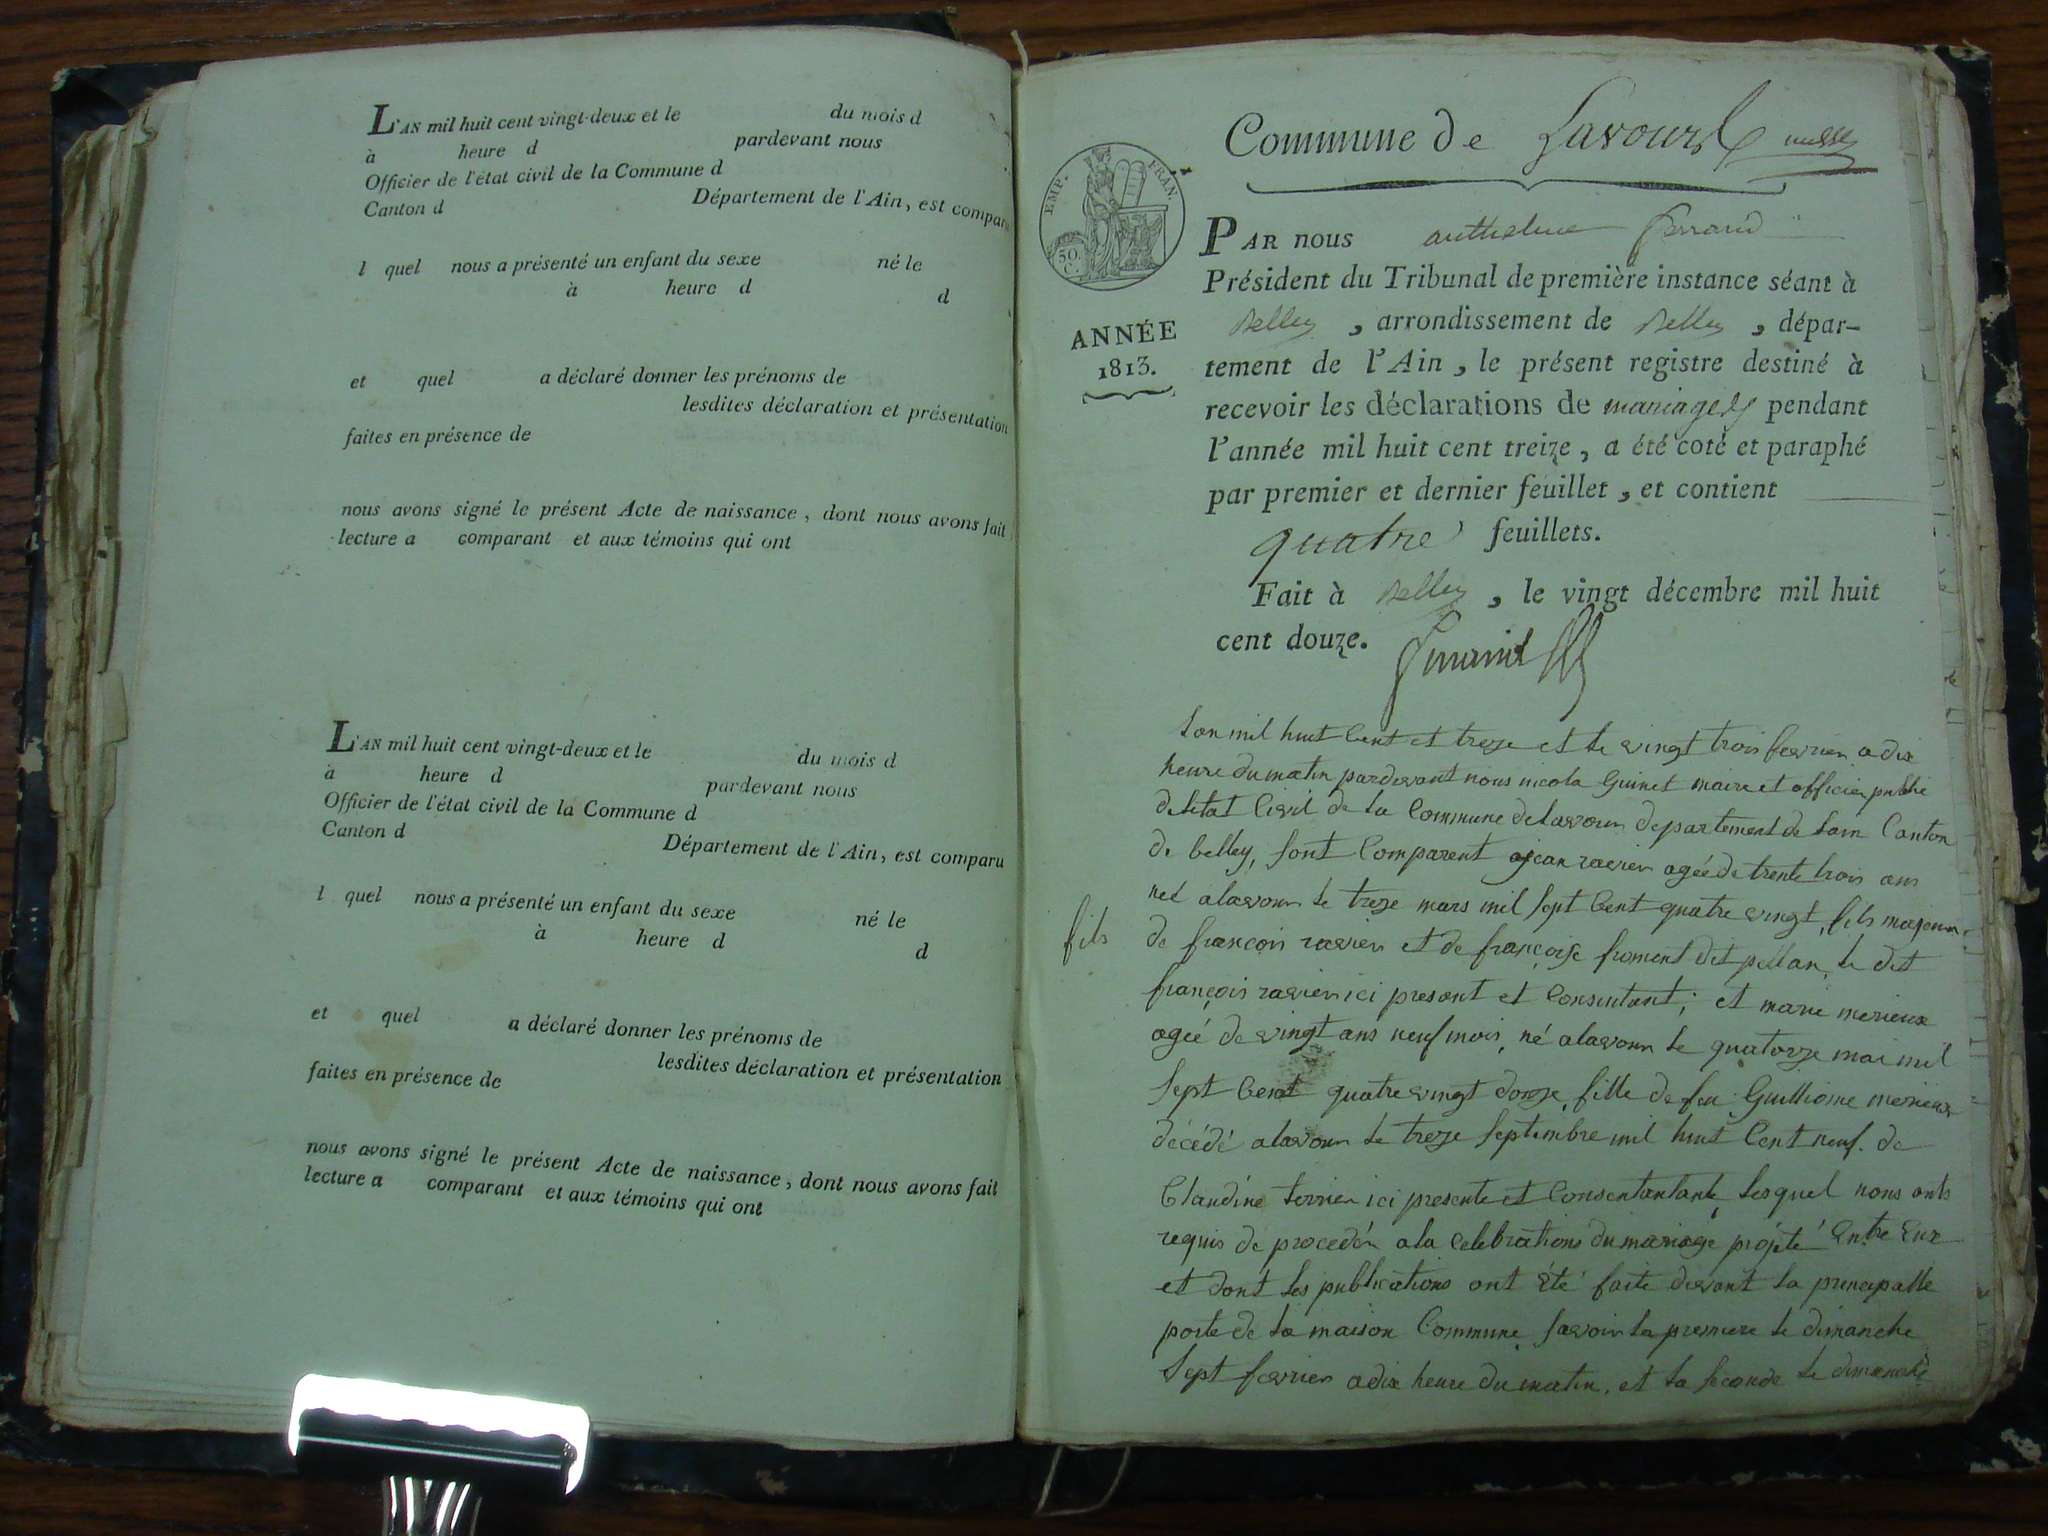 L'AN mil huit cent vingt-deux et le du mois d
à heure d pardevant nous
Officier de l'état civil de la Commune d
Canton d Département de l'Ain, est comparu
l quel nous a présenté un enfant du sexe né le
à heure d d
et quel a déclaré donner les prénoms de
lesdites déclaration et présentation
faites en présence de
nous avons signé le présent Acte de naissance, dont nous avons fait
lecture a comparant et aux témoins qui ont
L'AN mil huit cent vingt-deux et le du mois d
à heure d pardevant nous
Officier de l'état civil de la Commune d
Canton d Département de l'Ain, est comparu
l quel nous a présenté un enfant du sexe né le
à heure d d
et quel a déclaré donner les prénoms de
lesdites déclaration et présentation
faites en présence de
nous avons signé le présent Acte de naissance, dont nous avons fait
lecture a comparant et aux témoins qui ont
Commune de Lavours
EMP. FRAN.
50.
C.
ANNÉE
1813.
PAR nous anthelme ferrand
Président du Tribunal de première instance séant à
Belley, arrondissement de Belley, dépar-
tement de l'Ain, le présent registre destiné à
recevoir les déclarations de mariages pendant
l'année mil huit cent treize, a été coté et paraphé
par premier et dernier feuillet, et contient
quatre feuillets.
Fait à Belley, le vingt décembre mil huit
cent douze.
ferrand
Lan mil huit Cent et treze et le vingt trois fevrier a dix
heure du matin pardevant nous nicola Guinet maire et officier public
de letat Civil de la Commune de lavour departement de lain Canton
de belley, sont Comparent jean ravier agée de trente trois ans
neé a lavour le treze mars mil sept Cent quatre vingt, fils majeur
fils de françois ravier et de françoise froment dit pellan, le dit
françois ravier ici present et Consentant; et marie merieux
ageé de vingt ans neuf mois, né a lavour le quatorze mai mil
sept Cent quatre vingt douze, fille de feu Guilliome merieux
décédé a lavour le treze septembre mil huit Cent neuf. de
Claudine terrier ici presente et Consentantante, lesquel nous onts
requis de proceder a la Celebrations du mariage projeté Entre Eux
et dont les publications ont Été faite devant la principalle
porte de la maison Commune, savoir la premiere le dimanche
sept fevrier a dix heure du matin, et la seconde le dimanche